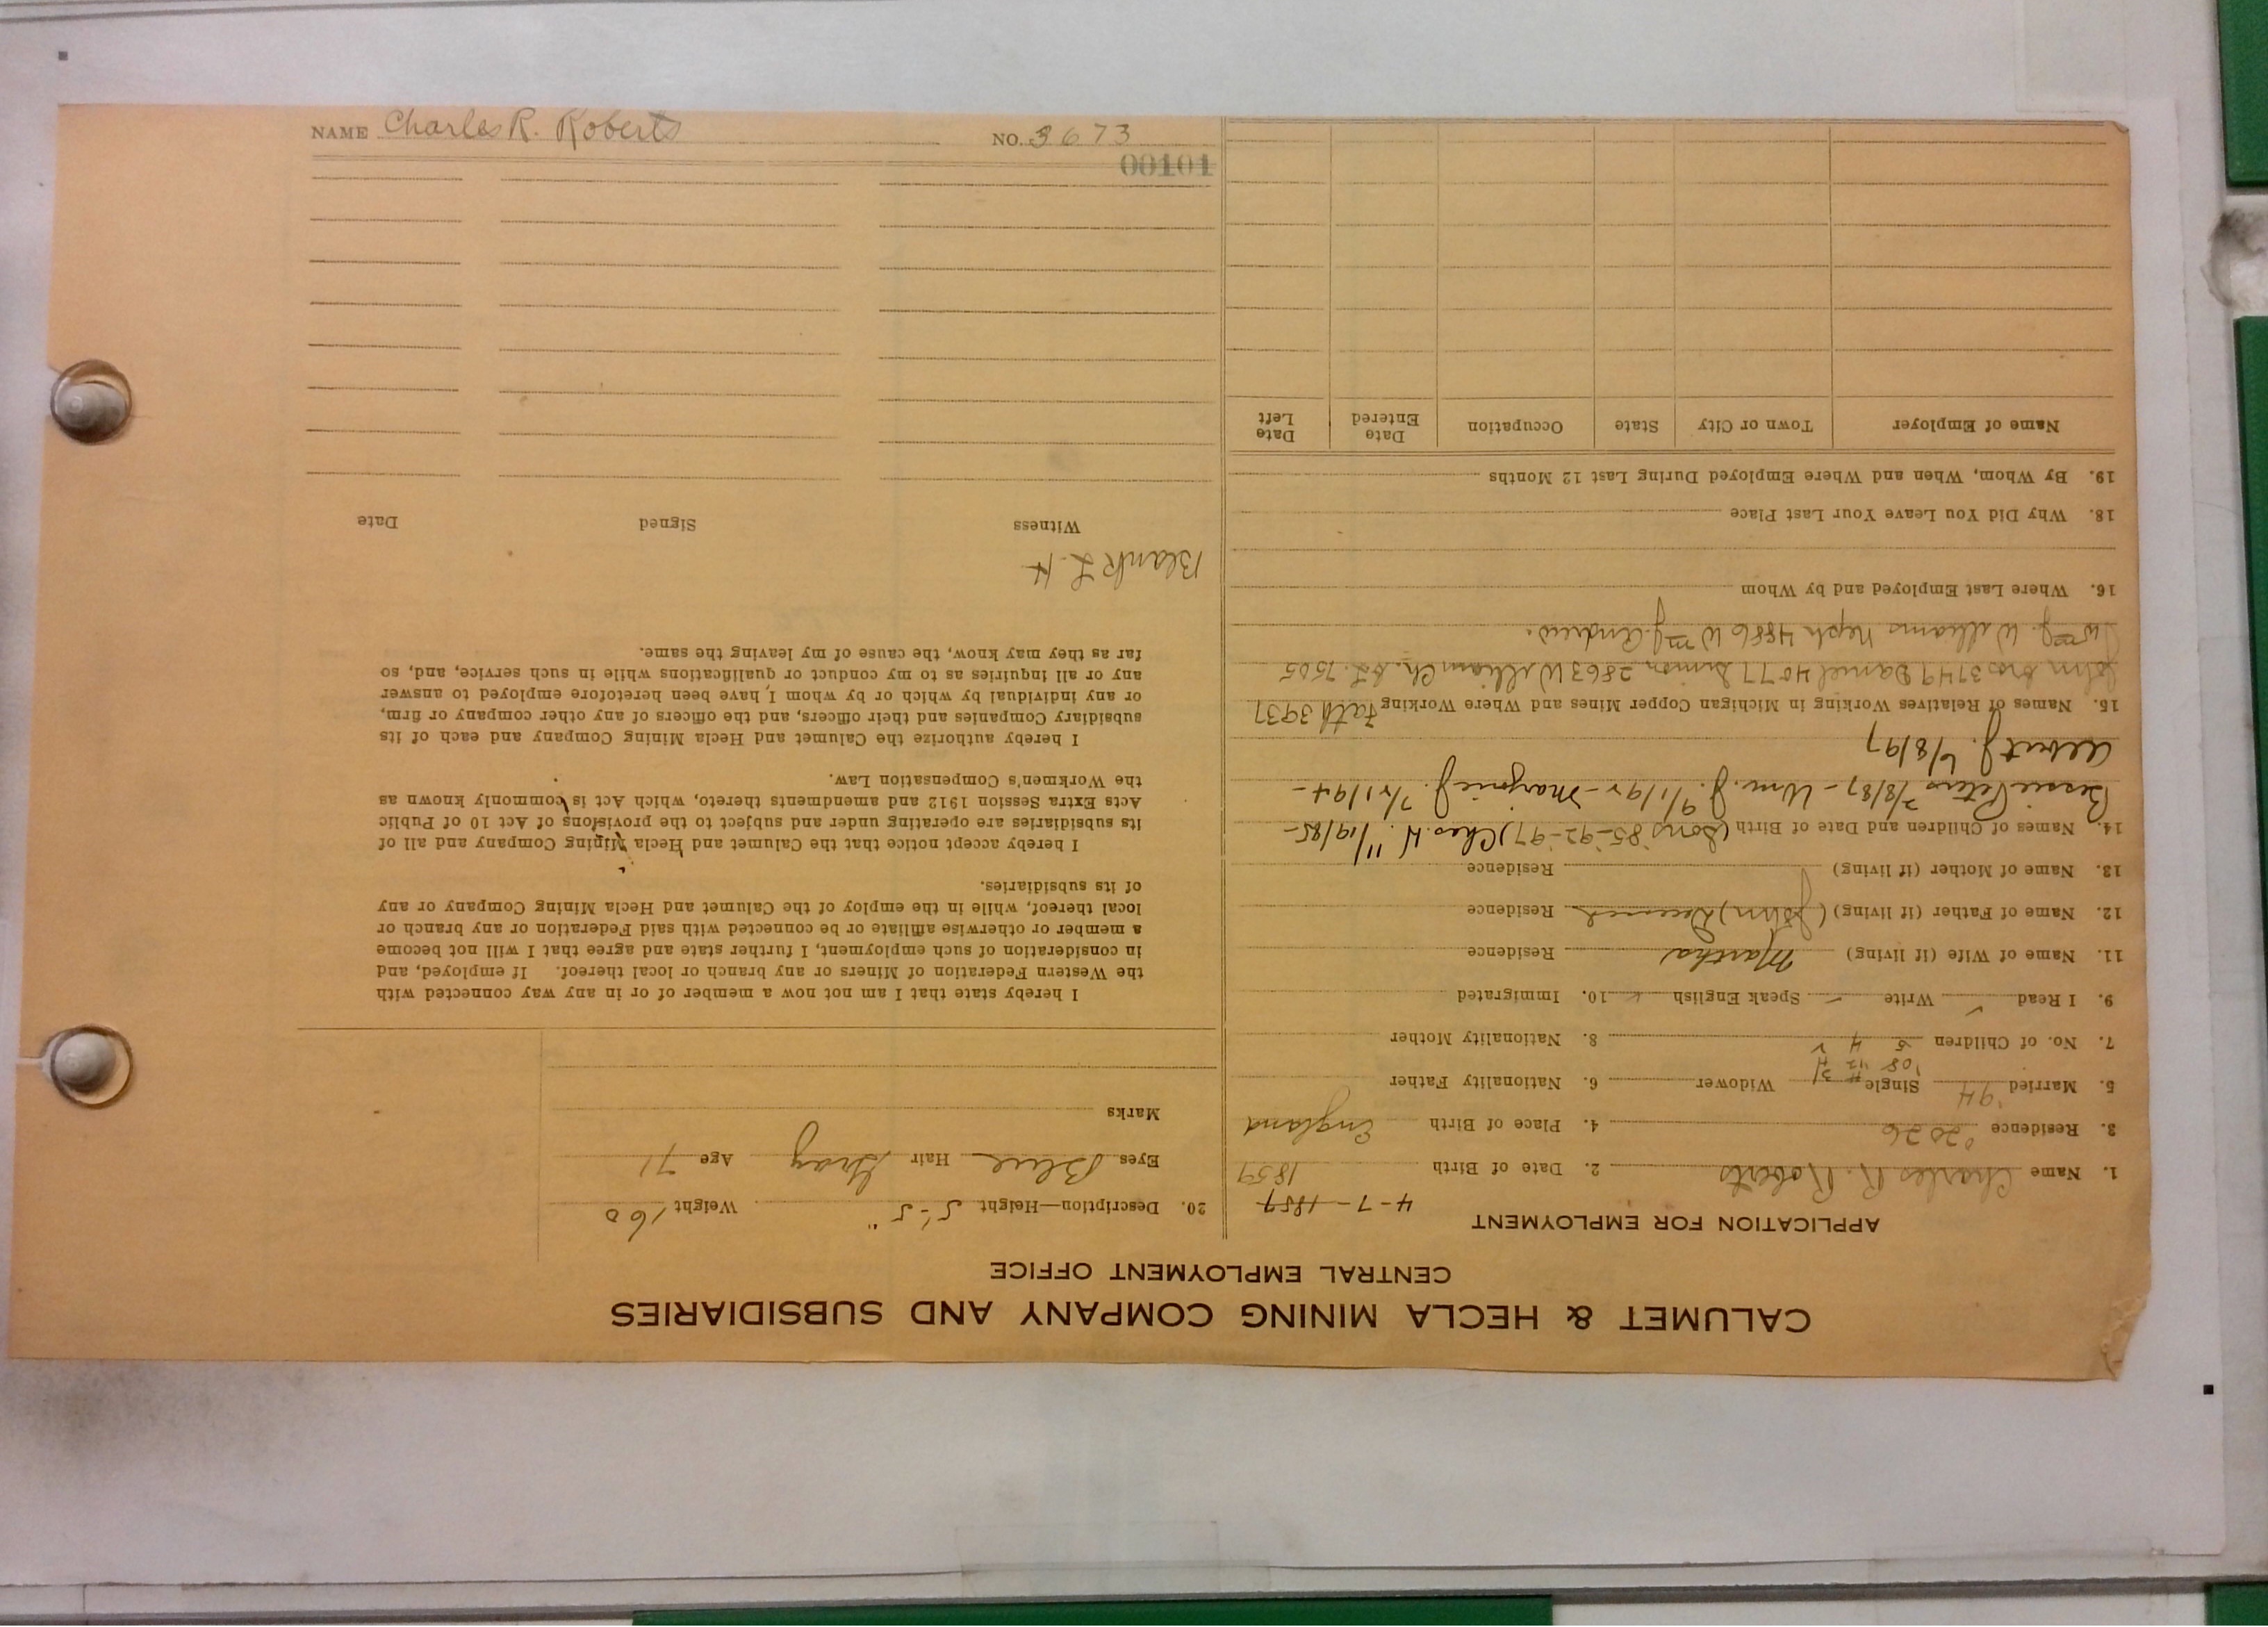 CALUMET & HECLA MINING COMPANY AND SUBSIDIARIES
CENTRAL EMPLOYMENT OFFICE
APPLICATION FOR EMPLOYMENT
4-7-1857
1. Name Charles R. Roberts 2. Date of Birth 1859
3. Residence °2026 4. Place of Birth England
5. Married '94 Single Widower 6. Nationality Father
'08 '12
7. No. of Children 5 4 8. Nationality Mother
9. I Read ✓ Write ✓ Speak English ✓ 10. Immigrated
11. Name of Wife (if living) Martha Residence
12. Name of Father (if living) (John) Deceased Residence
13. Name of Mother (if living) Residence
14. Names of Children and Date of Birth (Sons '85-'92-'97) Chas. H. 11/19/85-
Bessie Peters 7/8/87 - Wm. J. 9/1/92 - Marjorie J. 7/21/94 -
Albert J. 6/8/97
15. Names of Relatives Working in Michigan Copper Mines and Where Working Fath 3937
John bro 3749 Daniel 4077 Simon 2863 William Ch. 7505
Wm J. Williams Neph 4886 Wm J. Andrew.
16. Where Last Employed and by Whom
18. Why Did You Leave Your Last Place
19. By Whom, When and Where Employed During Last 12 Months
Name of Employer Town or City State Occupation Date Entered Date Left
20. Description—Height 5'-5" Weight 160
Eyes Blue Hair Gray Age 71
Marks
I hereby state that I am not now a member of or in any way connected with
the Western Federation of Miners or any branch or local thereof. If employed, and
in consideration of such employment, I further state and agree that I will not become
a member or otherwise affiliate or be connected with said Federation or any branch or
local thereof, while in the employ of the Calumet and Hecla Mining Company or any
of its subsidiaries.
I hereby accept notice that the Calumet and Hecla Mining Company and all of
its subsidiaries are operating under and subject to the provisions of Act 10 of Public
Acts Extra Session 1912 and amendments thereto, which Act is commonly known as
the Workmen's Compensation Law.
I hereby authorize the Calumet and Hecla Mining Company and each of its
subsidiary Companies and their officers, and the officers of any other company or firm,
or any individual by which or by whom I have been heretofore employed to answer
any or all inquiries as to my conduct or qualifications while in such service, and, so
far as they may know, the cause of my leaving the same.
Blank
Witness Signed Date
00101
NAME Charles R. Roberts NO. 3673